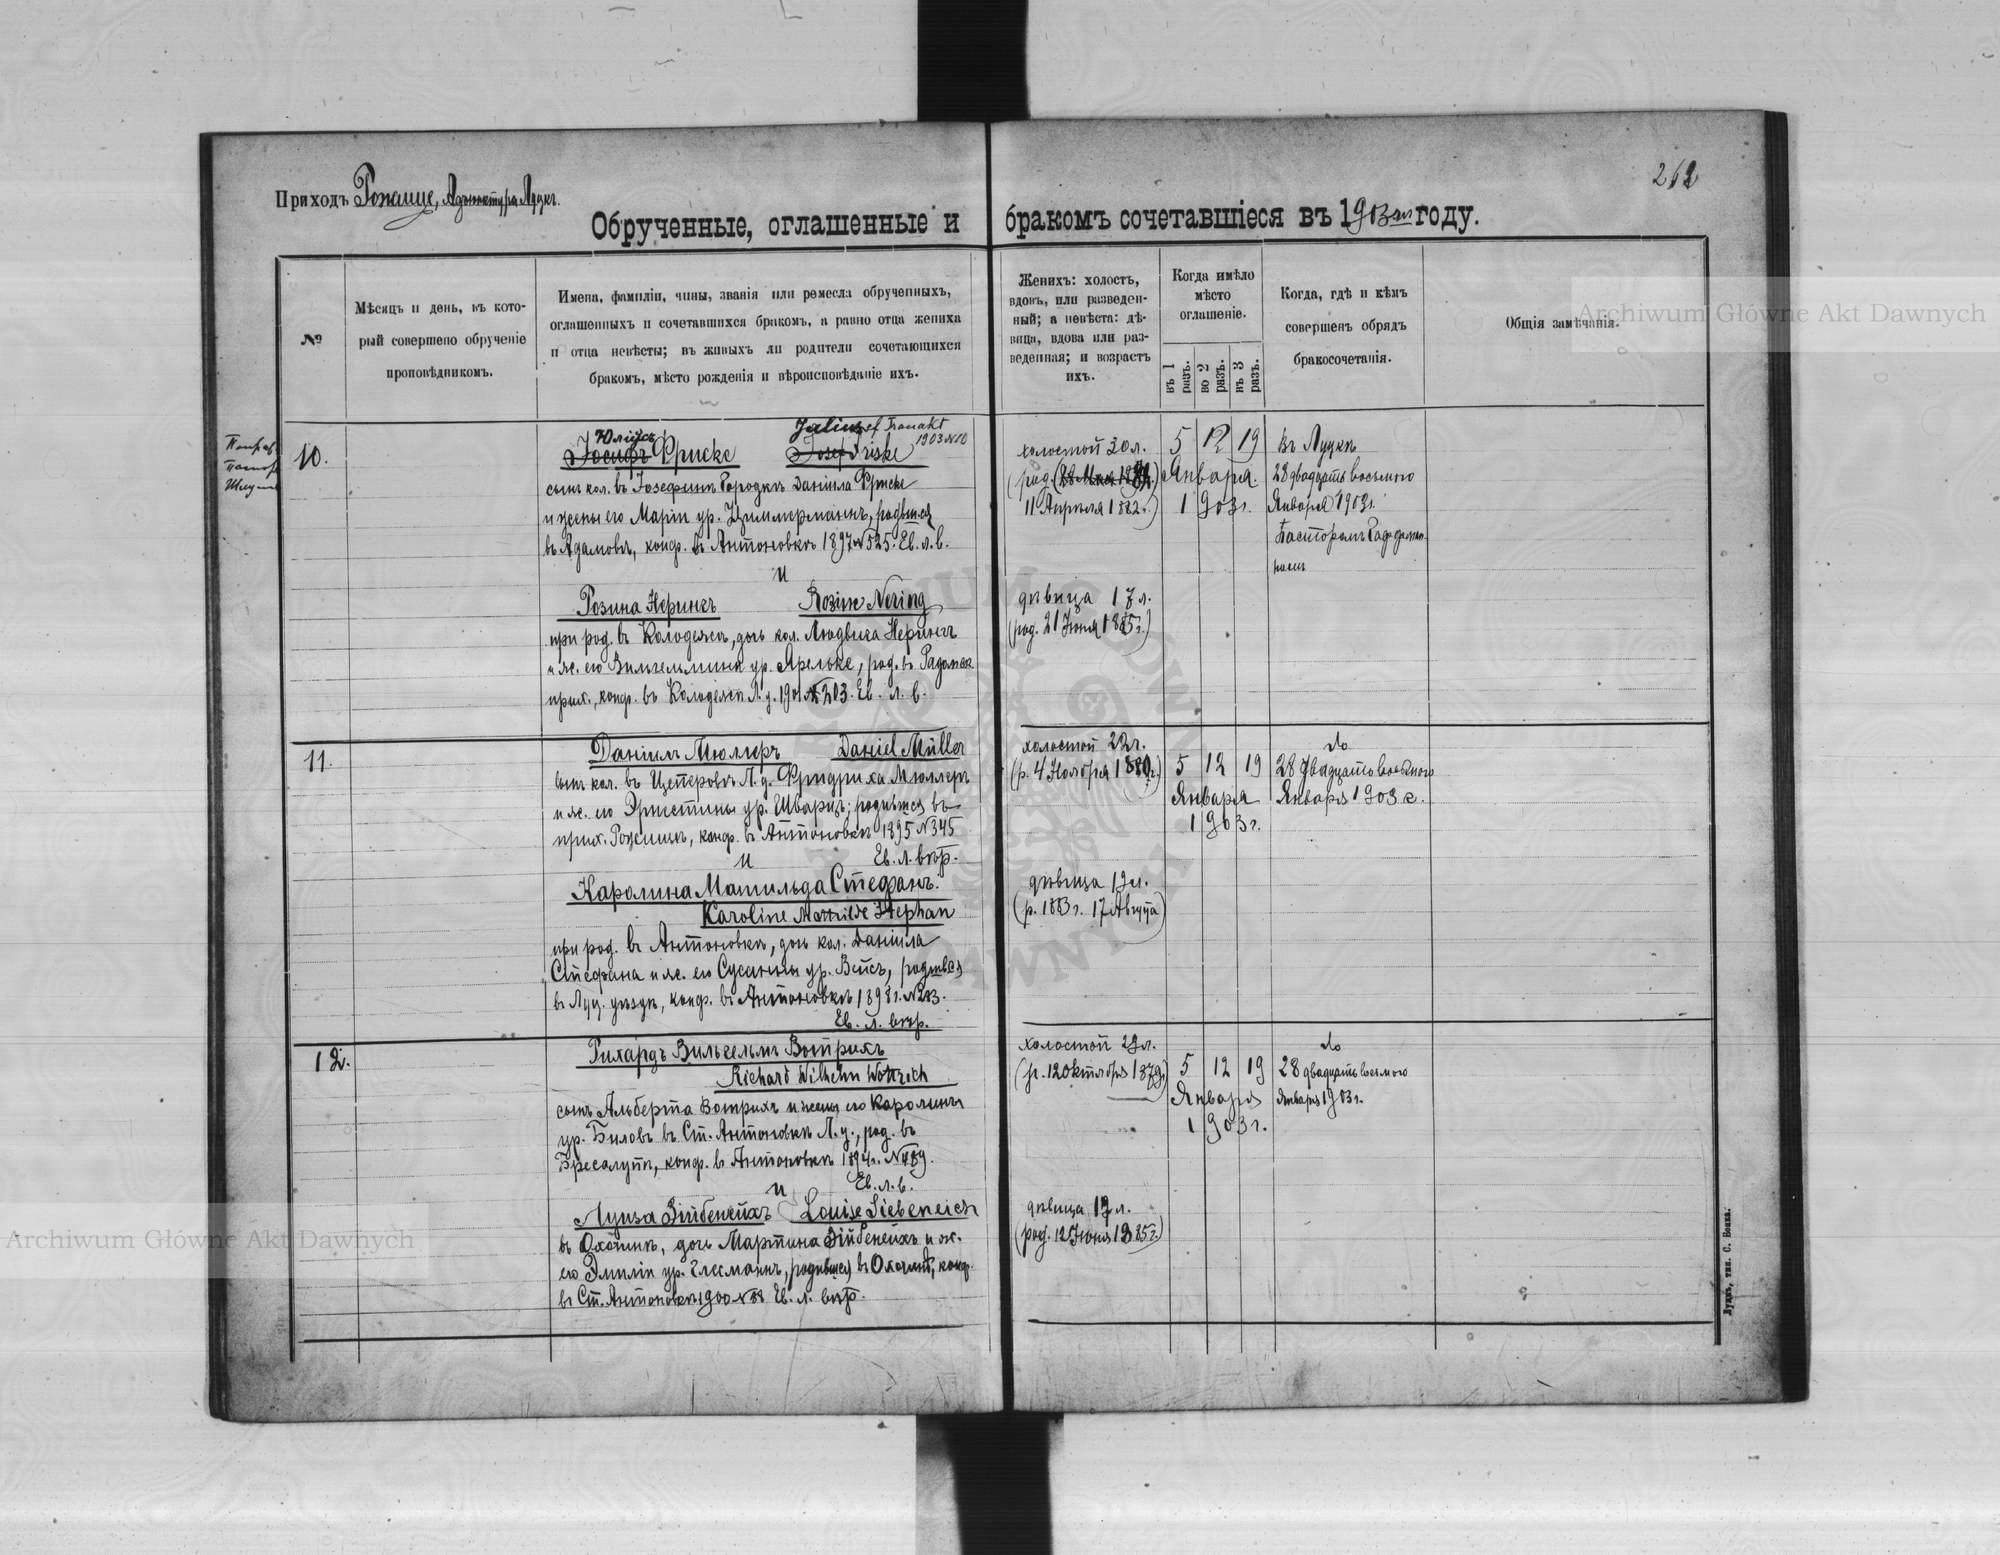 262
Приходъ Рожище, Адъюнктура Луцкъ.
Обрученные, оглашенные и бракомъ сочетавшіеся въ 1903 году.
№
Мѣсяцъ и день, въ кото-
рый совершено обрученіе
проповѣдникомъ.
Имена, фамиліи, чины, званія или ремесла обрученныхъ,
оглашенныхъ и сочетавшихся бракомъ, а равно отца жениха
и отца невѣсты; въ живыхъ ли родители сочетающихся
бракомъ, мѣсто рожденія и вѣроисповѣданіе ихъ.
Женихъ: холостъ,
вдовъ, или разведен-
ный; а невѣста: дѣ-
вица, вдова или раз-
веденная; и возрастъ
ихъ.
Когда имѣло
мѣсто
оглашеніе.
въ 1 разъ.
во 2 разъ.
въ 3 разъ.
Когда, гдѣ и кѣмъ
совершенъ обрядъ
бракосочетанія.
Общія замѣчанія.
10.
Юліусъ Julius
1903 №10
Іосифъ Фриске Josef Friske
сынъ кол. въ Іозефинъ Городкѣ Даніила Фриске
и жены его Маріи ур. Циммерманнъ, родивш.
въ Адамовкѣ, конф. въ Антоновкѣ 1897 №525. Ев. л. в.
и
Розина Нерингъ Rosine Nering
при род. въ Колодежѣ, дочь кол. Людвига Нерингъ
и ж. его Вильгельмины ур. , род. въ
прих., конф. въ Колодежѣ Л. у. 1901 №203. Ев. л. в.
холостой 20 л.
(род. (28 Мая 1882.)
11 Апрѣля 1882 г.)
5 12 19
Января
1903 г.
Въ Луцкѣ
28 двадцать восьмого
Января 1903 г.
Пасторомъ
дѣвица 17 л.
(род. 21 Іюня 1885 г.)
11.
Даніилъ Мюллеръ Daniel Müller
сынъ кол. въ Л. у. Фридриха Мюллеръ
и ж. его Эрнестины ур. Шварцъ; родивш. въ
прих. Рожище, конф. въ Антоновкѣ 1895 №345
и Ев. л. вѣр.
Каролина Матильда Стефанъ.
Karoline Mathilde Stephan
при род. въ Антоновкѣ, дочь кол. Даніила
Стефана и ж. его Сусанны ур. Вейсъ, родивш.
въ Луц. уѣздѣ, конф. въ Антоновкѣ 1898 г. №213.
Ев. л. вѣр.
холостой 22 г.
(р. 4 Ноября 1880 г.)
5 12 19
Января
1903 г.
до
28 двадцать восьмого
Января 1903 г.
дѣвица 19 л.
(р. 1883 г. 17 Августа)
12.
Рихардъ Вильгельмъ Вотрихъ
Richard Wilhelm Wottrich
сынъ Альберта Вотрихъ и жены его Каролины
ур. Биловъ въ Ст. Антоновкѣ Л. у., род. въ
конф. въ Антоновкѣ 1894 г. №489.
и Ев. л. в.
Луиза Зибенейхъ Louise Siebeneich
въ Охотинѣ, дочь Мартина Зибенейхъ и ж.
его Эмиліи ур. Глесманнъ, родившися въ Охотинѣ, конф.
въ Ст. Антоновкѣ 1900 №88 Ев. л. вѣр.
холостой 23 л.
(р. 12 Октября 1879)
5 12 19
Января
1903 г.
до
28 двадцать восьмого
Января 1903 г.
дѣвица 17 л.
(род. 12 Іюня 1885 г.)
Луцкъ, тип. С. Бонка.
Archiwum Główne Akt Dawnych
Archiwum Główne Akt Dawnych